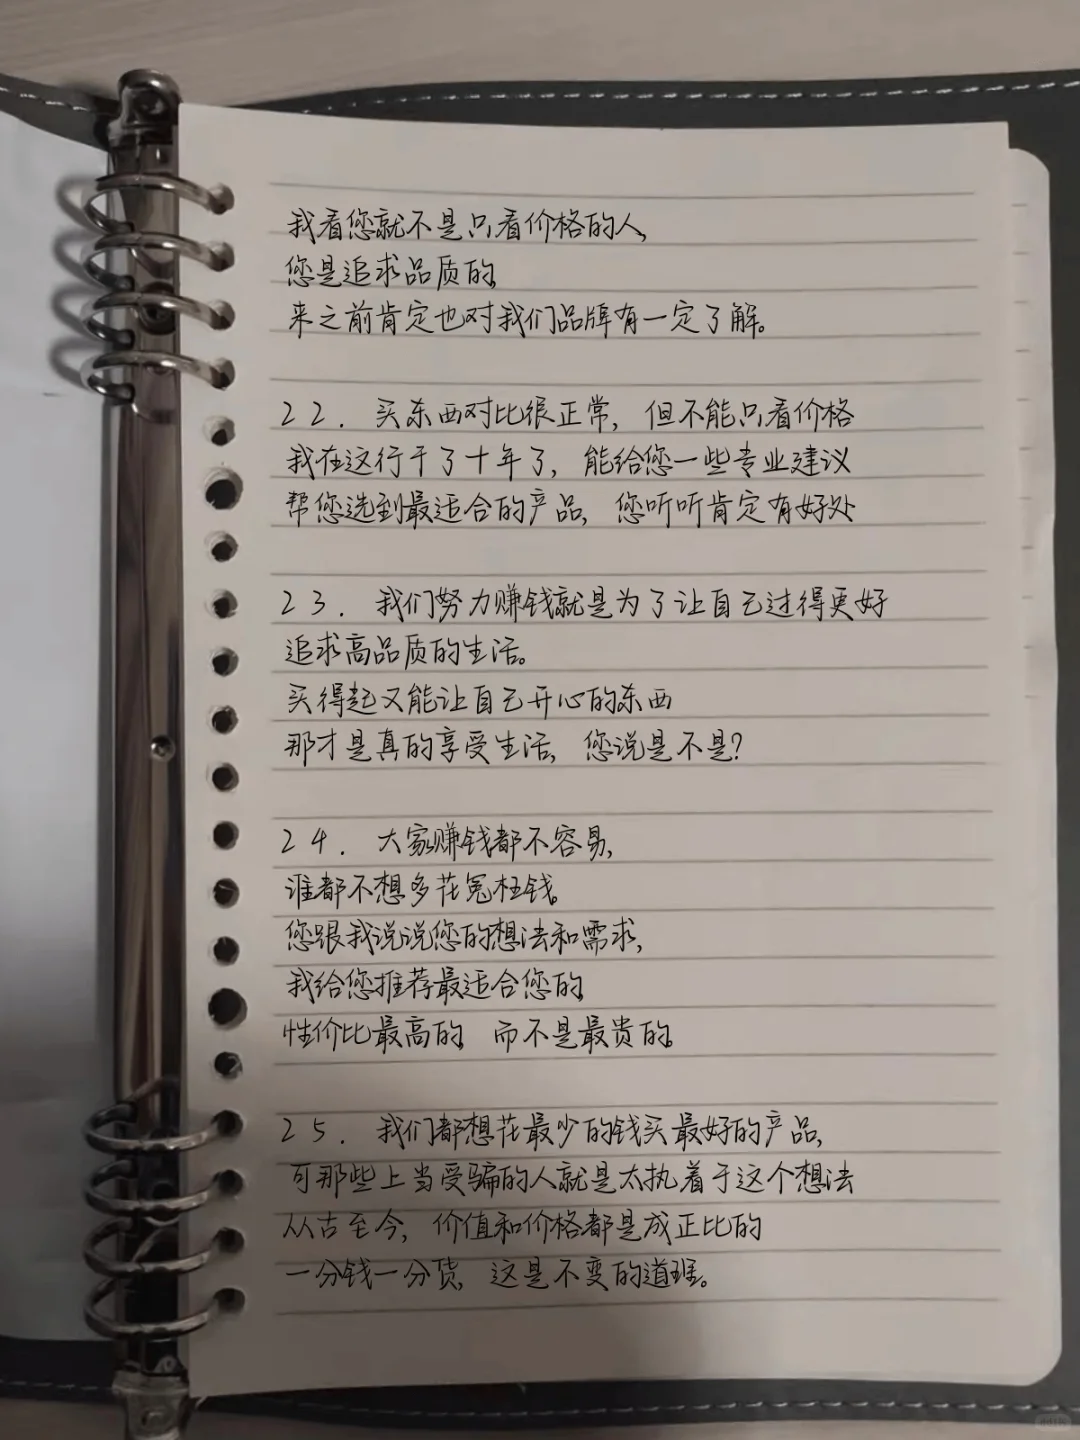 我看您就不是只看价格的人,
您是追求品质的,
来之前肯定也对我们品牌有一定了解。
22. 买东西对比很正常, 但不能只看价格
我在这行干了十年了, 能给您一些专业建议
帮您选到最适合的产品, 您听听肯定有好处
23. 我们努力赚钱就是为了让自己过得更好
追求高品质的生活。
买得起又能让自己开心的东西
那才是真的享受生活, 您说是不是?
24. 大家赚钱都不容易,
谁都不想多花冤枉钱。
您跟我说说您的想法和需求,
我给您推荐最适合您的,
性价比最高的, 而不是最贵的。
25. 我们都想花最少的钱买最好的产品,
可那些上当受骗的人就是太执着于这个想法
从古至今, 价值和价格都是成正比的
一分钱一分货, 这是不变的道理。